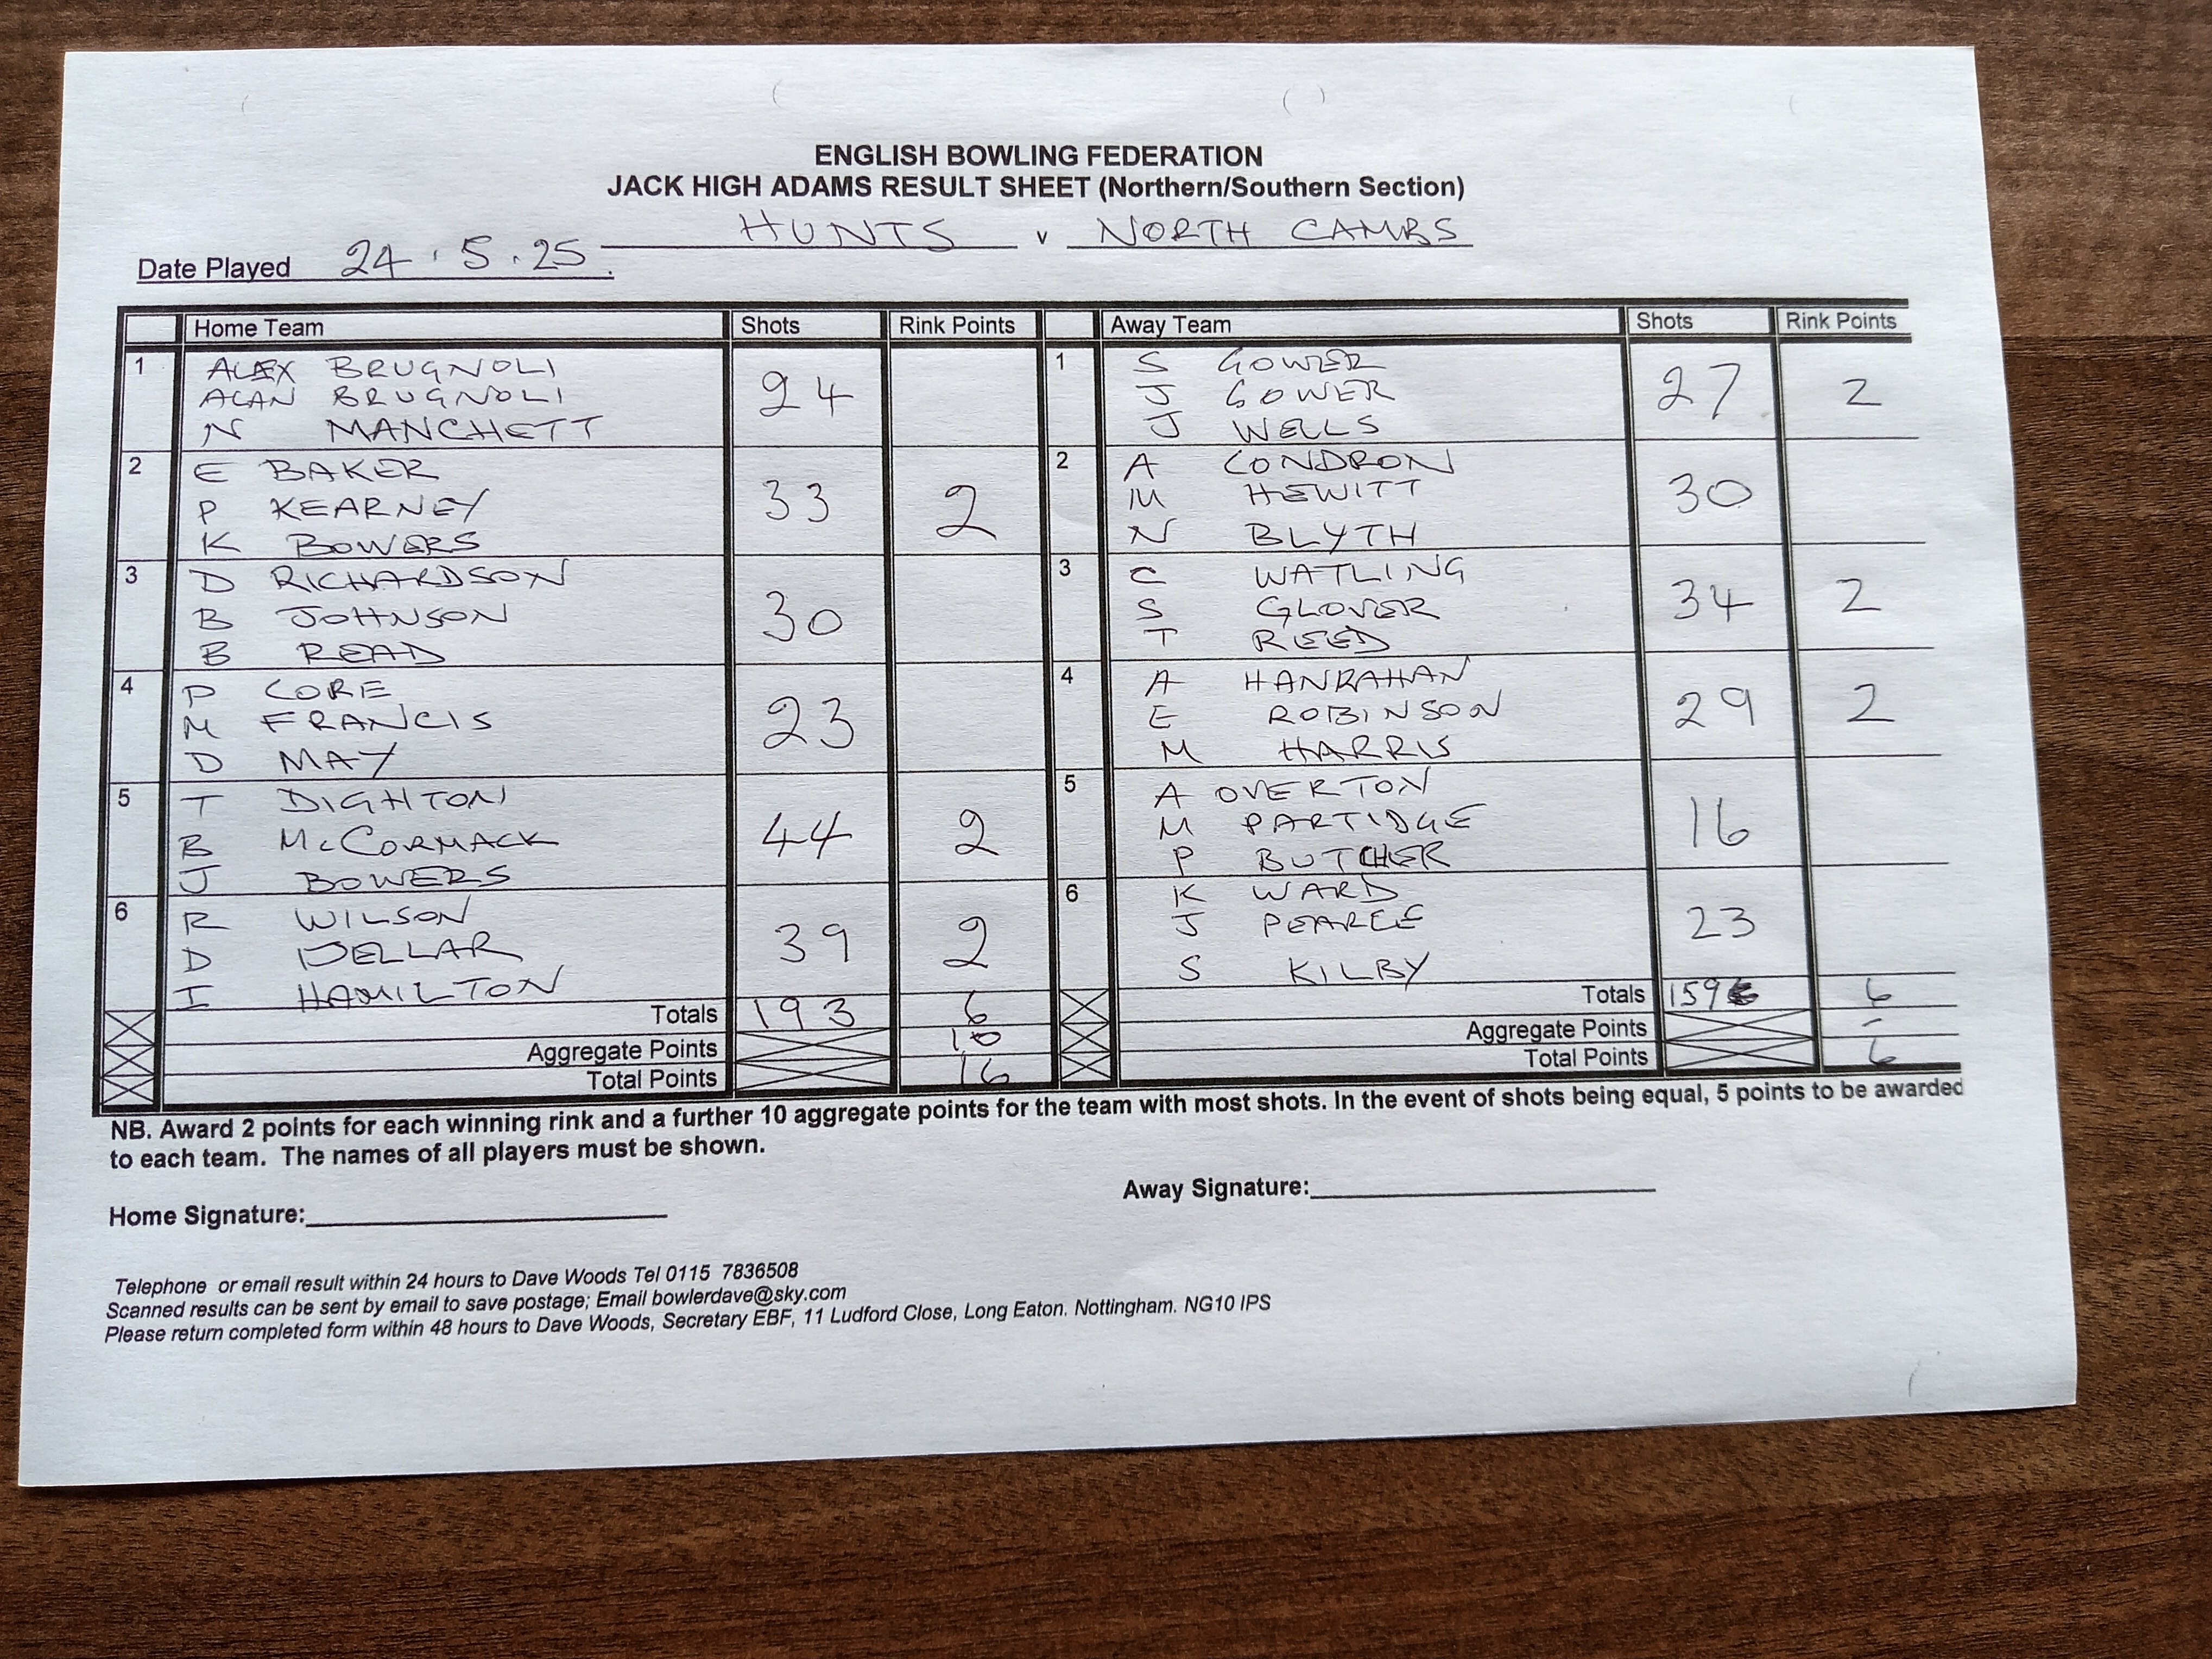 ENGLISH BOWLING FEDERATION
JACK HIGH ADAMS RESULT SHEET (Northern/Southern Section)
HUNTS v NORTH CAMBS
Date Played 24.5.25.
Home Team Shots Rink Points Away Team Shots Rink Points
1 ALEX BRUGNOLI
ALAN BRUGNOLI 24
N MANCHETT
1 S GOWER
J GOWER 27 2
J WELLS
2 E BAKER
P KEARNEY 33 2
K BOWERS
2 A CONDRON
M HEWITT 30
N BLYTH
3 D RICHARDSON
B JOHNSON 30
B READ
3 C WATLING
S GLOVER 34 2
T REED
4 P CORE
M FRANCIS 23
D MAY
4 A HANRAHAN
E ROBINSON 29 2
M HARRIS
5 T DIGHTON
B McCORMACK 44 2
J BOWERS
5 A OVERTON
M PARTIDGE 16
P BUTCHER
6 R WILSON
D DELLAR 39 2
I HAMILTON
6 K WARD
J PEARCE 23
S KILBY
Totals 193 6
Aggregate Points 10
Total Points 16
Totals 159 6
Aggregate Points -
Total Points 6
NB. Award 2 points for each winning rink and a further 10 aggregate points for the team with most shots. In the event of shots being equal, 5 points to be awarded
to each team. The names of all players must be shown.
Home Signature: Away Signature:
Telephone or email result within 24 hours to Dave Woods Tel 0115 7836508
Scanned results can be sent by email to save postage; Email bowlerdave@sky.com
Please return completed form within 48 hours to Dave Woods, Secretary EBF, 11 Ludford Close, Long Eaton. Nottingham. NG10 IPS